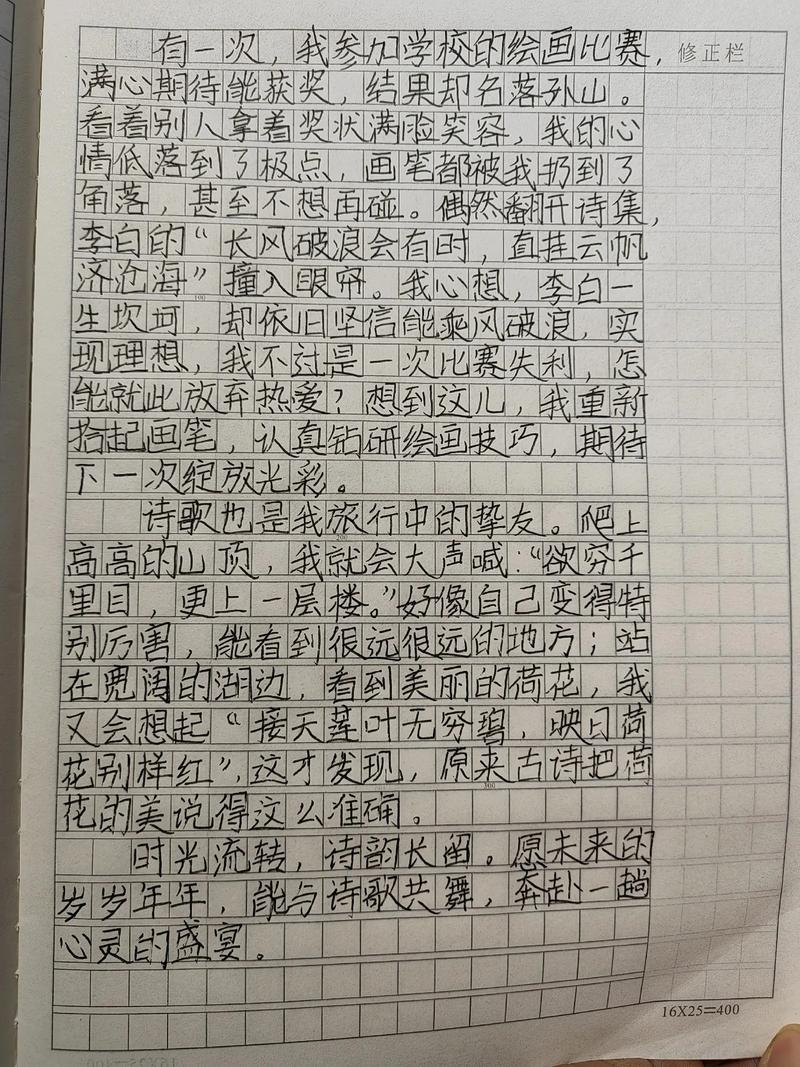 有一次，我参加学校的绘画比赛，
修正栏
满心期待能获奖，结果却名落孙山。
看着别人拿着奖状满脸笑容，我的心
情低落到了极点，画笔都被我扔到了
角落，甚至不想再碰。偶然翻开诗集，
李白的“长风破浪会有时，直挂云帆
济沧海”撞入眼帘。我心想，李白一
100
生坎坷，却依旧坚信能乘风破浪，实
现理想，我不过是一次比赛失利，怎
能就此放弃热爱？想到这儿，我重新
拾起画笔，认真钻研绘画技巧，期待
下一次绽放光彩。
诗歌也是我旅行中的挚友。爬上
200
高高的山顶，我就会大声喊：“欲穷千
里目，更上一层楼。”好像自己变得特
别厉害，能看到很远很远的地方；站
在宽阔的湖边，看到美丽的荷花，我
又会想起“接天莲叶无穷碧，映日荷
花别样红”，这才发现，原来古诗把荷
300
花的美说得这么准确。
时光流转，诗韵长留。愿未来的
岁岁年年，能与诗歌共舞，奔赴一趟
心灵的盛宴。
16X25=400